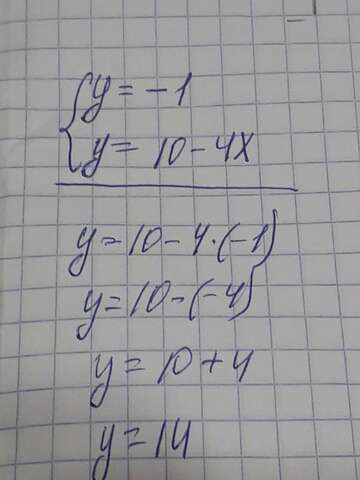 {y = -1
y = 10 - 4x
y = 10 - 4 · (-1)
y = 10 - (-4)
y = 10 + 4
y = 14